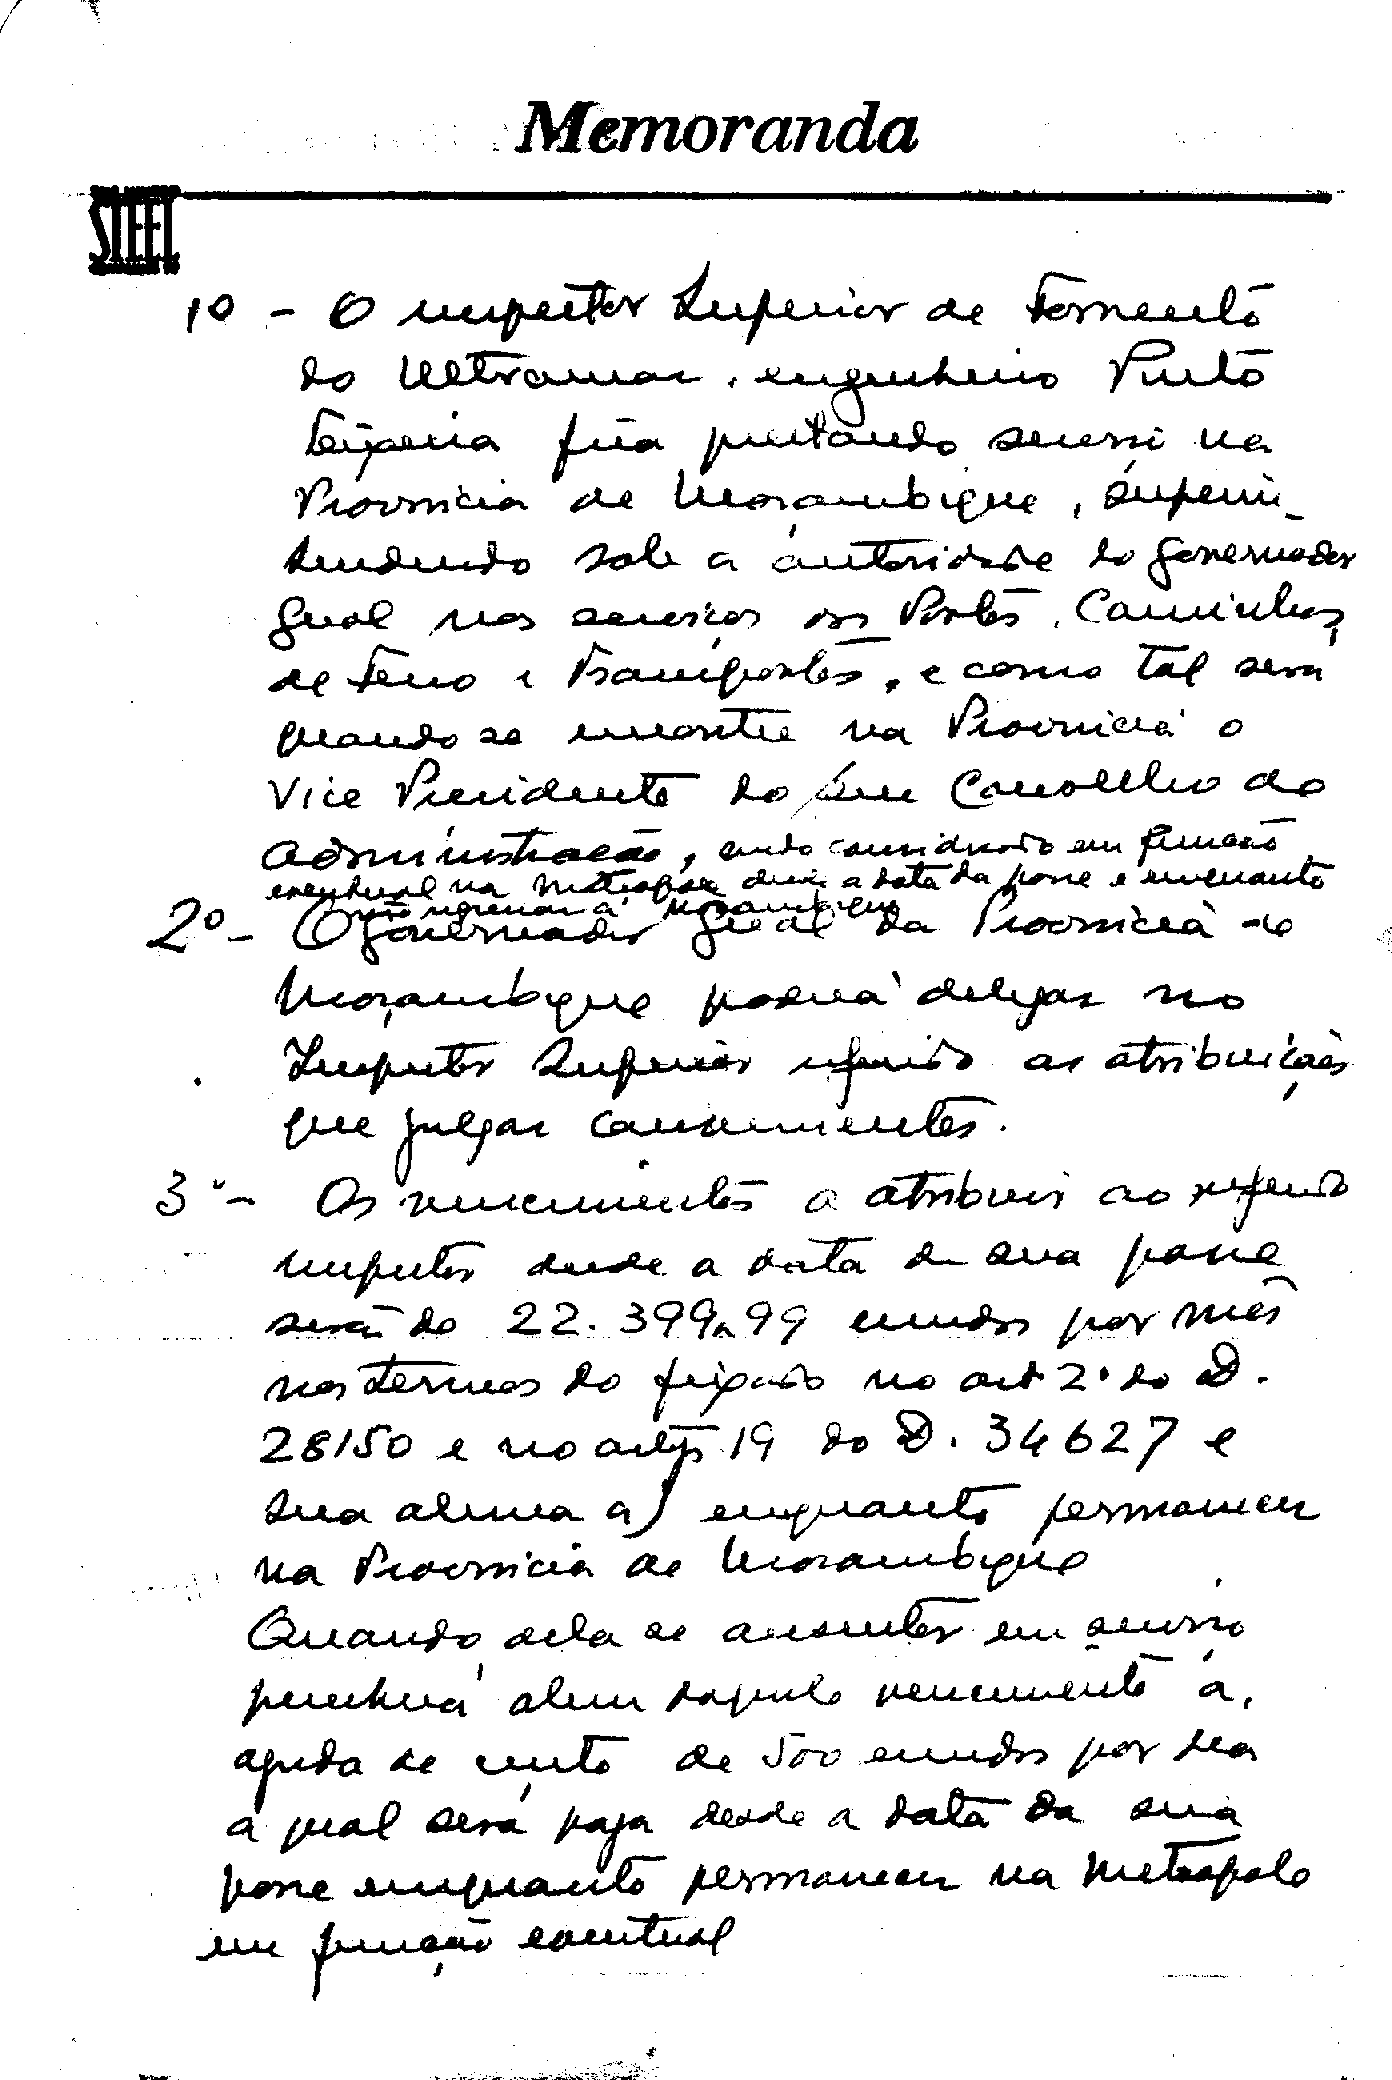 Memoranda
STEEL
1º - O inspector Superior de Fomento
do Ultramar, engenheiro Pinto
Teixeira fica prestando serviço na
Provincia de Moçambique, superin-
tendendo sob a autoridade do governador
geral nos serviços dos Portos, Caminhos
de Ferro e Transportes, e como tal será
quando se encontre na Provincia o
Vice Presidente do seu Conselho de
Administração, sendo considerado em função
eventual na metropole desde a data da posse e enquanto
não regressar a Moçambique
2º - O Governador Geral da Provincia de
Moçambique poderá delegar no
Inspector Superior referido as atribuições
que julgar convenientes.
3º - Os vencimentos a atribuir ao referido
inspector desde a data de sua posse
serão de 22.399,99 escudos por mês
nos termos do fixado no art 2º do D.
28150 e no artº 19 do D. 34627 e
sua alinea a) enquanto permanecer
na Provincia de Moçambique
Quando dela se ausentar em serviço
perceberá alem daquele vencimento a
ajuda de custo de 500 escudos por dia
a qual será paga desde a data da sua
posse enquanto permanecer na Metropole
em função eventual